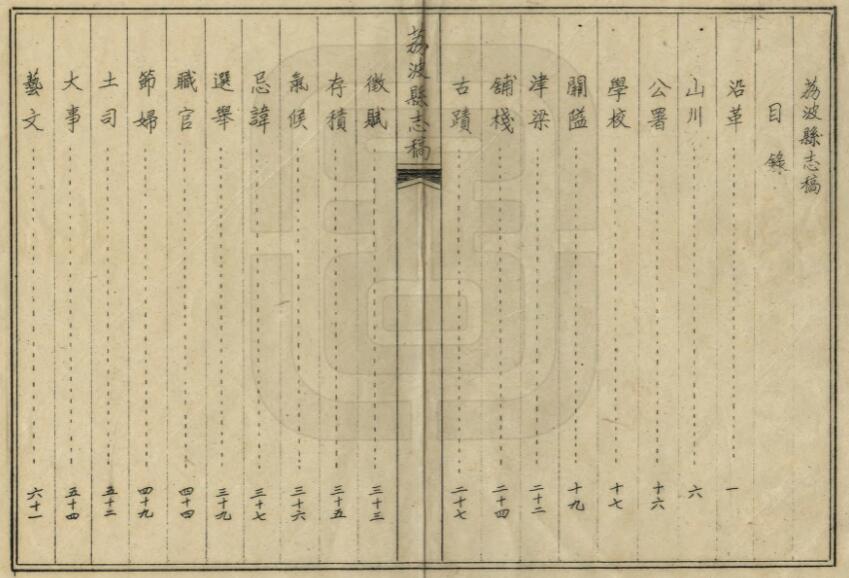 荔波縣志稿
目錄
沿革 一
山川 六
公署 十六
學校 十七
關隘 十九
津梁 二十二
舖棧 二十四
古蹟 二十七
荔波縣志稿
徵賦 三十三
存積 三十五
氣候 三十六
忌諱 三十七
選舉 三十九
職官 四十四
節婦 四十九
土司 五十二
大事 五十四
藝文 六十一